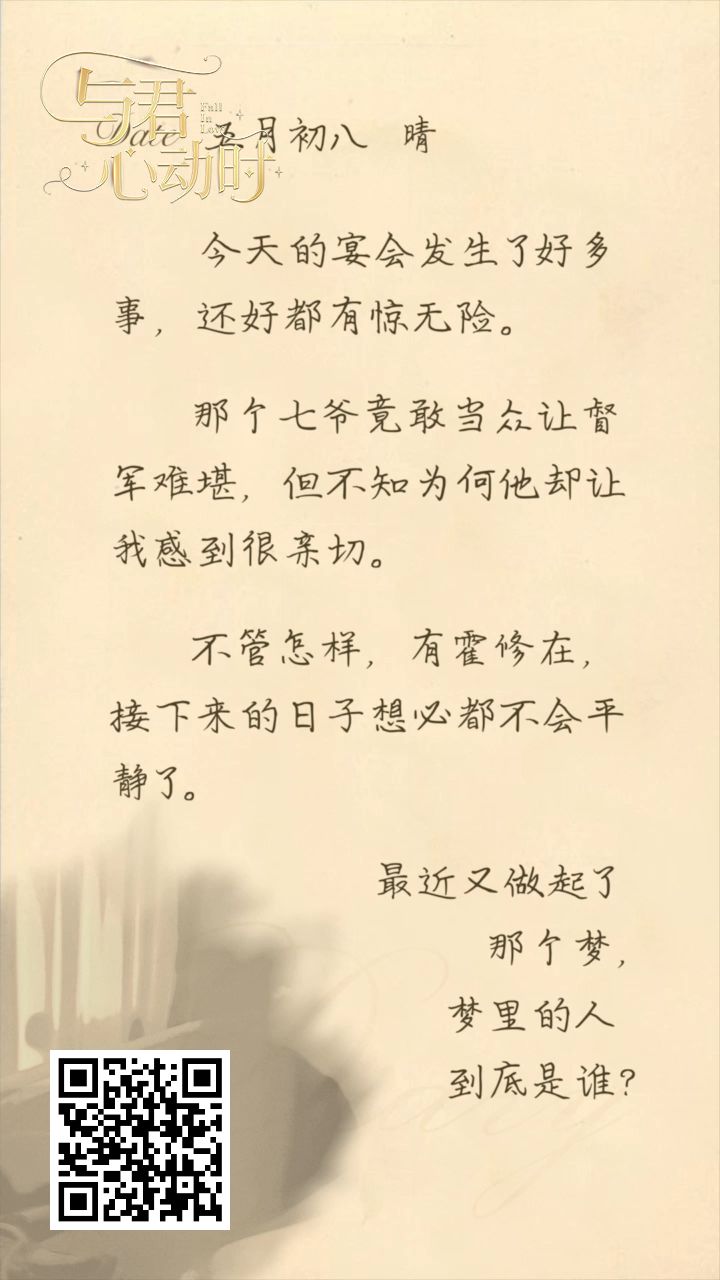 与君
心动时
Fall
In
Love
Date 五月初八 晴
今天的宴会发生了好多
事，还好都有惊无险。
那个七爷竟敢当众让督
军难堪，但不知为何他却让
我感到很亲切。
不管怎样，有霍修在，
接下来的日子想必都不会平
静了。
最近又做起了
那个梦，
梦里的人
到底是谁？